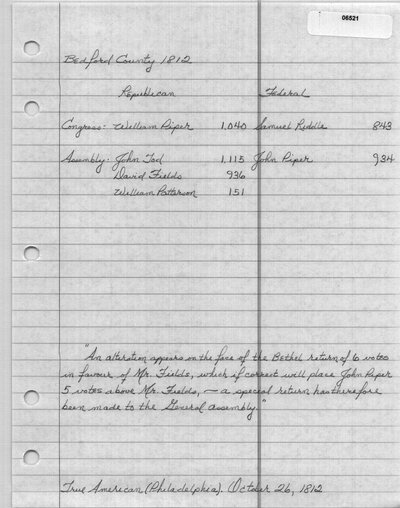 06521
Bedford County 1812
Republican Federal
Congress: William Piper 1,040 Samuel Riddle 843
Assembly: John Tod 1,115 John Piper 934
David Fields 936
William Patterson 151
"An alteration appears on the face of the Bethel return of 6 votes
in favour of Mr. Fields, which if correct will place John Piper
5 votes above Mr. Fields, — a special return has therefore
been made to the General Assembly."
True American (Philadelphia). October 26, 1812